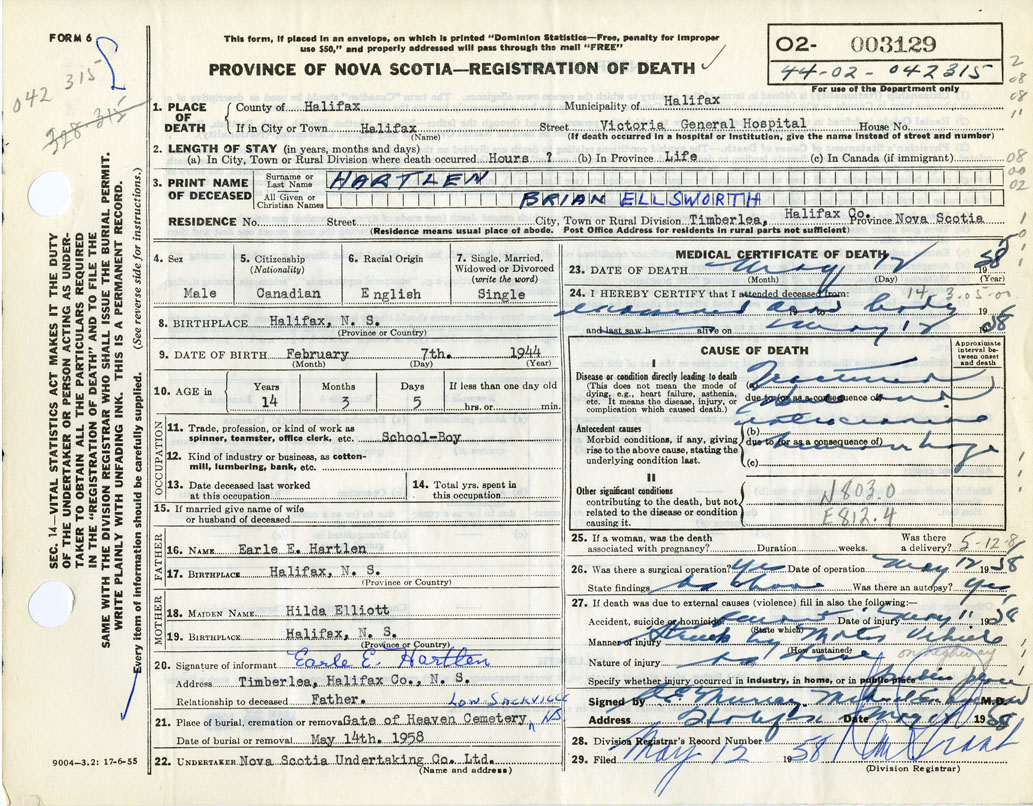 FORM 6
042 315
228-315
This form, if placed in an envelope, on which is printed "Dominion Statistics—Free, penalty for improper
use $50," and properly addressed will pass through the mail "FREE"
PROVINCE OF NOVA SCOTIA—REGISTRATION OF DEATH
02- 003129
44-02-042315
For use of the Department only
1. PLACE OF DEATH
County of Halifax Municipality of Halifax
If in City or Town Halifax Street Victoria General Hospital House No.
(Name) (If death occurred in a hospital or institution, give the name instead of street and number)
2. LENGTH OF STAY (in years, months and days)
(a) In City, Town or Rural Division where death occurred Hours ? (b) In Province Life (c) In Canada (if immigrant)
3. PRINT NAME OF DECEASED
Surname or Last Name HARTLEN
All Given or Christian Names BRIAN ELLSWORTH
RESIDENCE No. Street City, Town or Rural Division Timberlea, Halifax Co. Province Nova Scotia
(Residence means usual place of abode. Post Office Address for residents in rural parts not sufficient)
4. Sex
Male
5. Citizenship
(Nationality)
Canadian
6. Racial Origin
English
7. Single, Married,
Widowed or Divorced
(write the word)
Single
8. BIRTHPLACE Halifax, N. S.
(Province or Country)
9. DATE OF BIRTH February 7th. 1944
(Month) (Day) (Year)
10. AGE in
Years Months Days If less than one day old
14 3 5 hrs. or min.
OCCUPATION
11. Trade, profession, or kind of work as
spinner, teamster, office clerk, etc. School-Boy
12. Kind of industry or business, as cotton-
mill, lumbering, bank, etc.
13. Date deceased last worked
at this occupation
14. Total yrs. spent in
this occupation
15. If married give name of wife
or husband of deceased
FATHER
16. NAME Earle E. Hartlen
17. BIRTHPLACE Halifax, N. S.
(Province or Country)
MOTHER
18. MAIDEN NAME Hilda Elliott
19. BIRTHPLACE Halifax, N. S.
(Province or Country)
20. Signature of informant Earle E. Hartlen
Address Timberlea, Halifax Co., N. S.
Relationship to deceased Father.
LOW SACKVILLE
21. Place of burial, cremation or removal Gate of Heaven Cemetery NS
Date of burial or removal May 14th. 1958
22. UNDERTAKER Nova Scotia Undertaking Co. Ltd.
(Name and address)
MEDICAL CERTIFICATE OF DEATH
23. DATE OF DEATH May 12 1958
(Month) (Day) (Year)
24. I HEREBY CERTIFY that I attended deceased from:
14 3-05-00
examined body
and last saw h alive on May 12 1958
CAUSE OF DEATH
Approximate interval between onset and death
I
Disease or condition directly leading to death
(This does not mean the mode of
dying, e.g., heart failure, asthenia,
etc. It means the disease, injury, or
complication which caused death.)
(a) Fractured
due to (or as a consequence of)
Antecedent causes
Morbid conditions, if any, giving
rise to the above cause, stating the
underlying condition last.
(b) intracranial
due to (or as a consequence of)
(c) hemorrhage
II
Other significant conditions
contributing to the death, but not
related to the disease or condition
causing it.
N803.0
E812.4
25. If a woman, was the death
associated with pregnancy? Duration weeks. Was there a delivery?
5-12-8
26. Was there a surgical operation? Yes Date of operation May 12 1958
State findings as above Was there an autopsy? Yes
27. If death was due to external causes (violence) fill in also the following:—
Accident, suicide or homicide Accident Date of injury May 11 1958
(State which)
Manner of injury Struck by Motor Vehicle
(How sustained)
on highway
Nature of injury as above
Specify whether injury occurred in industry, in home, or in public place
Signed by M.D.
Address Halifax Date May 1958
28. Division Registrar's Record Number
29. Filed May 12 1958
(Division Registrar)
SEC. 14—VITAL STATISTICS ACT MAKES IT THE DUTY
OF THE UNDERTAKER OR PERSON ACTING AS UNDER-
TAKER TO OBTAIN ALL THE PARTICULARS REQUIRED
IN THE "REGISTRATION OF DEATH" AND TO FILE THE
SAME WITH THE DIVISION REGISTRAR WHO SHALL ISSUE THE BURIAL PERMIT.
WRITE PLAINLY WITH UNFADING INK. THIS IS A PERMANENT RECORD.
Every item of information should be carefully supplied. (See reverse side for instructions.)
9004-3.2: 17-6-55